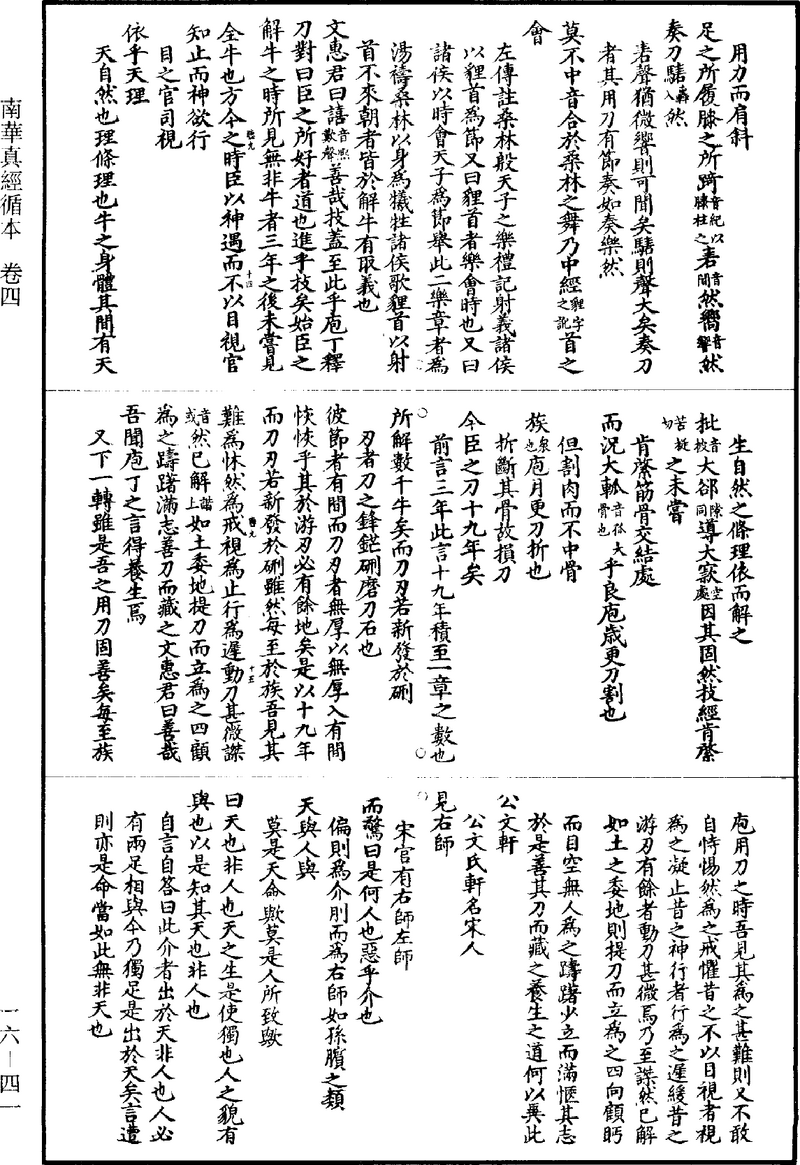 南華真經循本　卷四
一六—四一
用刀而肩斜
足之所履膝之所踦音紀以膝柱之砉音間然嚮音響然
奏刀騞轟入然
砉聲猶微嚮則可聞矣騞則聲大矣奏刀
者其用刀有節奏如奏樂然
莫不中音合於桑林之舞乃中經貍字之訛首之
會
左傳註桑林殷天子之樂禮記射義諸侯
以貍首為節又曰貍首者樂會時也又曰
諸侯以時會天子為節舉此二樂章者為
湯禱桑林以身為犧牲諸侯歌貍首以射
首不來朝者皆於解牛有取義也
文惠君曰譆音熙歎聲善哉技蓋至此乎庖丁釋
刀對曰臣之所好者道也進乎技矣始臣之
解牛之時所見無非牛者三年之後未嘗見
全牛也方今之時臣以神遇而不以目視官
知止而神欲行
目之官司視
依乎天理
天自然也理條理也牛之身體其間有天
生自然之條理依而解之
批音披大郤隙同導大窾空處因其固然技經肯綮
苦挺切之未嘗
肯綮筋骨交結處
而況大軱音孤大骨也乎良庖歲更刀割也
但割肉而不中骨
族衆也庖月更刀折也
折斷其骨故損刀
今臣之刀十九年矣
前言三年此言十九年積至一章之數也
所解數千牛矣而刀刃若新發於硎
刃者刀之鋒鋩硎磨刀石也
彼節者有間而刀刃者無厚以無厚入有間
恢恢乎其於游刃必有餘地矣是以十九年
而刀刃若新發於硎雖然每至於族吾見其
難為怵然為戒視為止行為遲動刀甚微謋
音或然已解諧上如土委地提刀而立為之四顧
為之躊躇滿志善刀而藏之文惠君曰善哉
吾聞庖丁之言得養生焉
又下一轉雖是吾之用刀固善矣每至族
庖用刀之時吾見其為之甚難則又不敢
自恃惕然為之戒懼昔之不以目視者視
為之凝止昔之神行者行為之遲緩昔之
游刃有餘者動刀甚微焉乃至謋然已解
如土之委地則提刀而立為之四向顧眄
而目空無人為之躊躇少立而滿愜其志
於是善其刀而藏之養生之道何以異此
公文軒
公文氏軒名宋人
見右師
宋官有右師左師
而驚曰是何人也惡乎介也
偏則為介刖而為右師如孫臏之類
天與人與
莫是天命歟莫是人所致歟
曰天也非人也天之生是使獨也人之貌有
與也以是知其天也非人也
自言自答曰此介者出於天非人也人必
有兩足相與今乃獨足是出於天矣言遭
則亦是命當如此無非天也